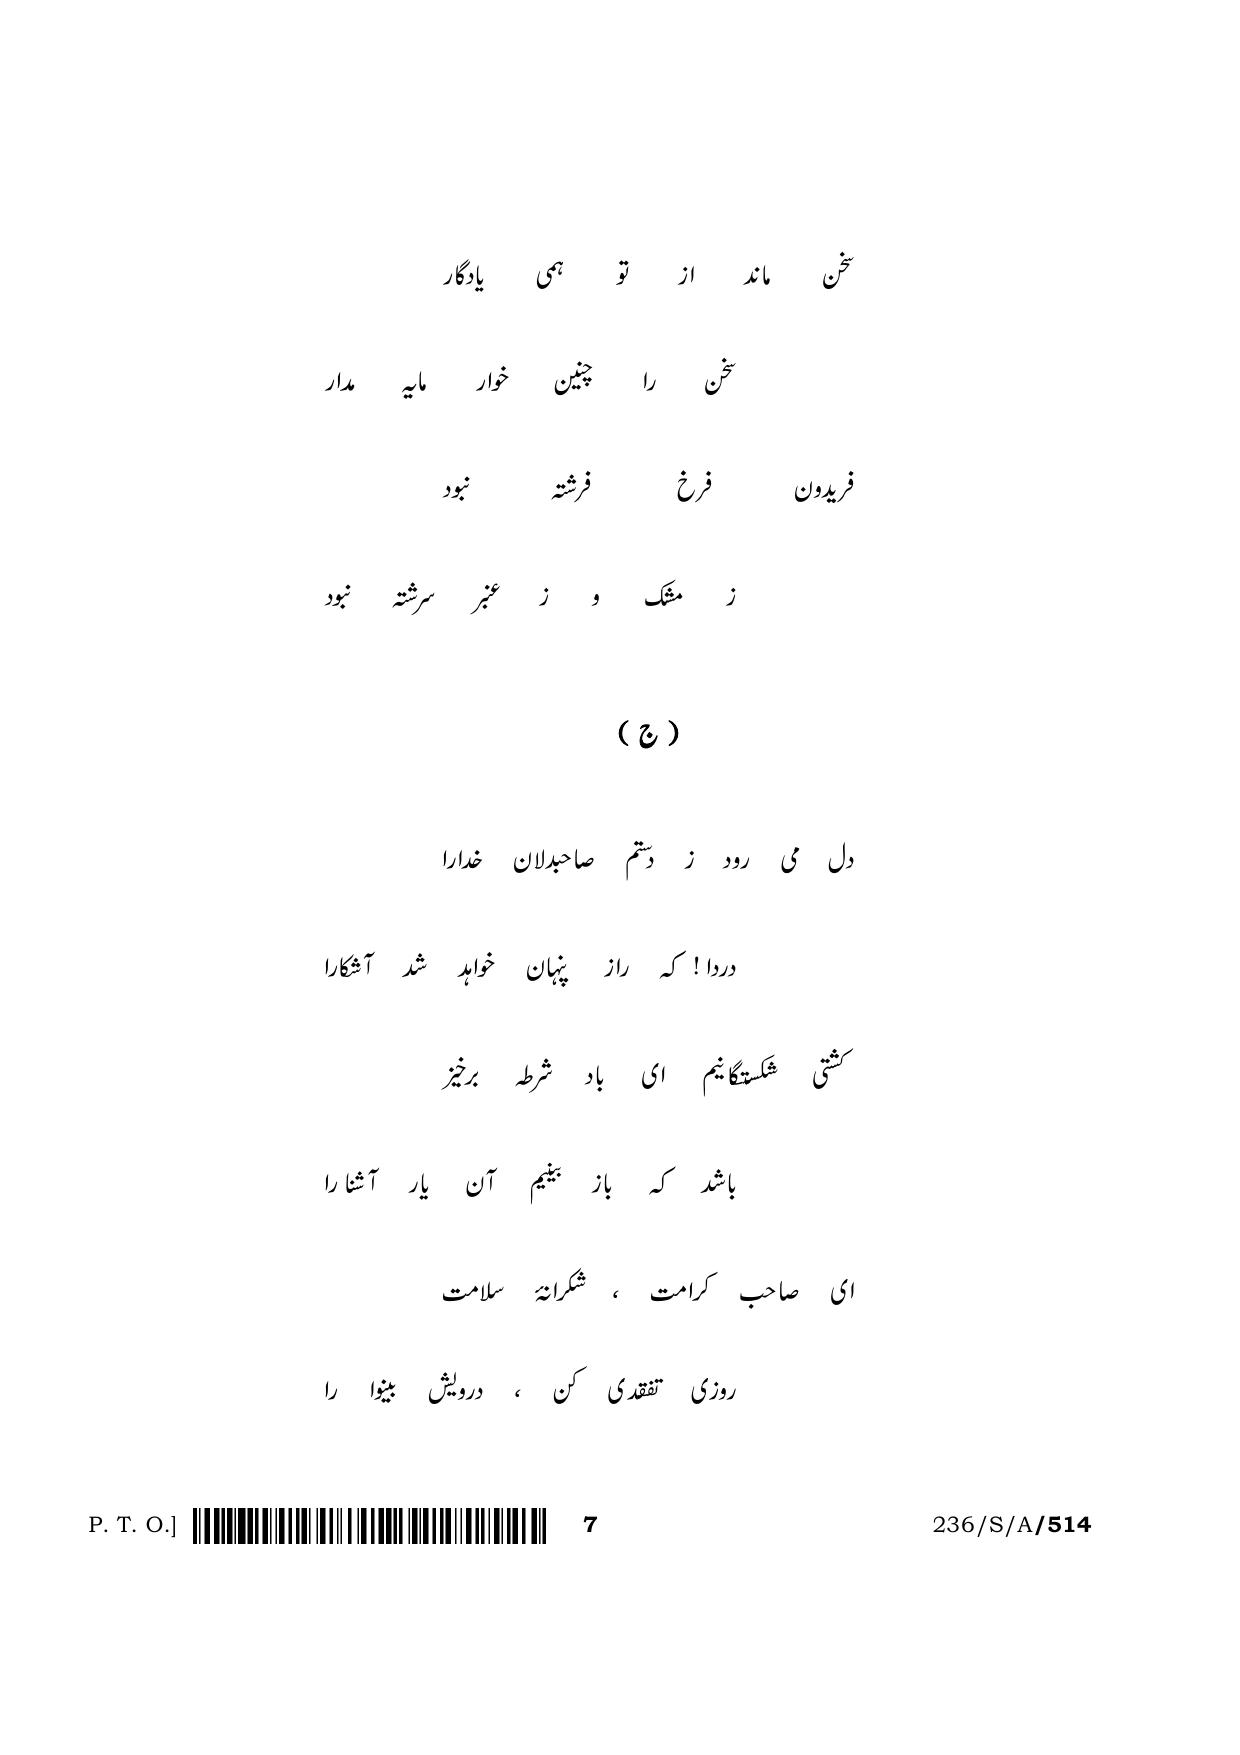 سخن ماند از تو ہمی یادگار
سخن را چنین خوار مایہ مدار
فریدون فرخ فرشتہ نبود
ز مشک و ز عنبر سرشتہ نبود
( ج )
دل می رود ز دستم صاحبدلان خدارا
دردا ! کہ راز پنہان خواہد شد آشکارا
کشتی شکستگانیم ای باد شرطہ برخیز
باشد کہ باز بینیم آن یار آشنا را
ای صاحب کرامت ، شکرانۂ سلامت
روزی تفقدی کن ، درویش بینوا را
P. T. O.] 7 236/S/A/514